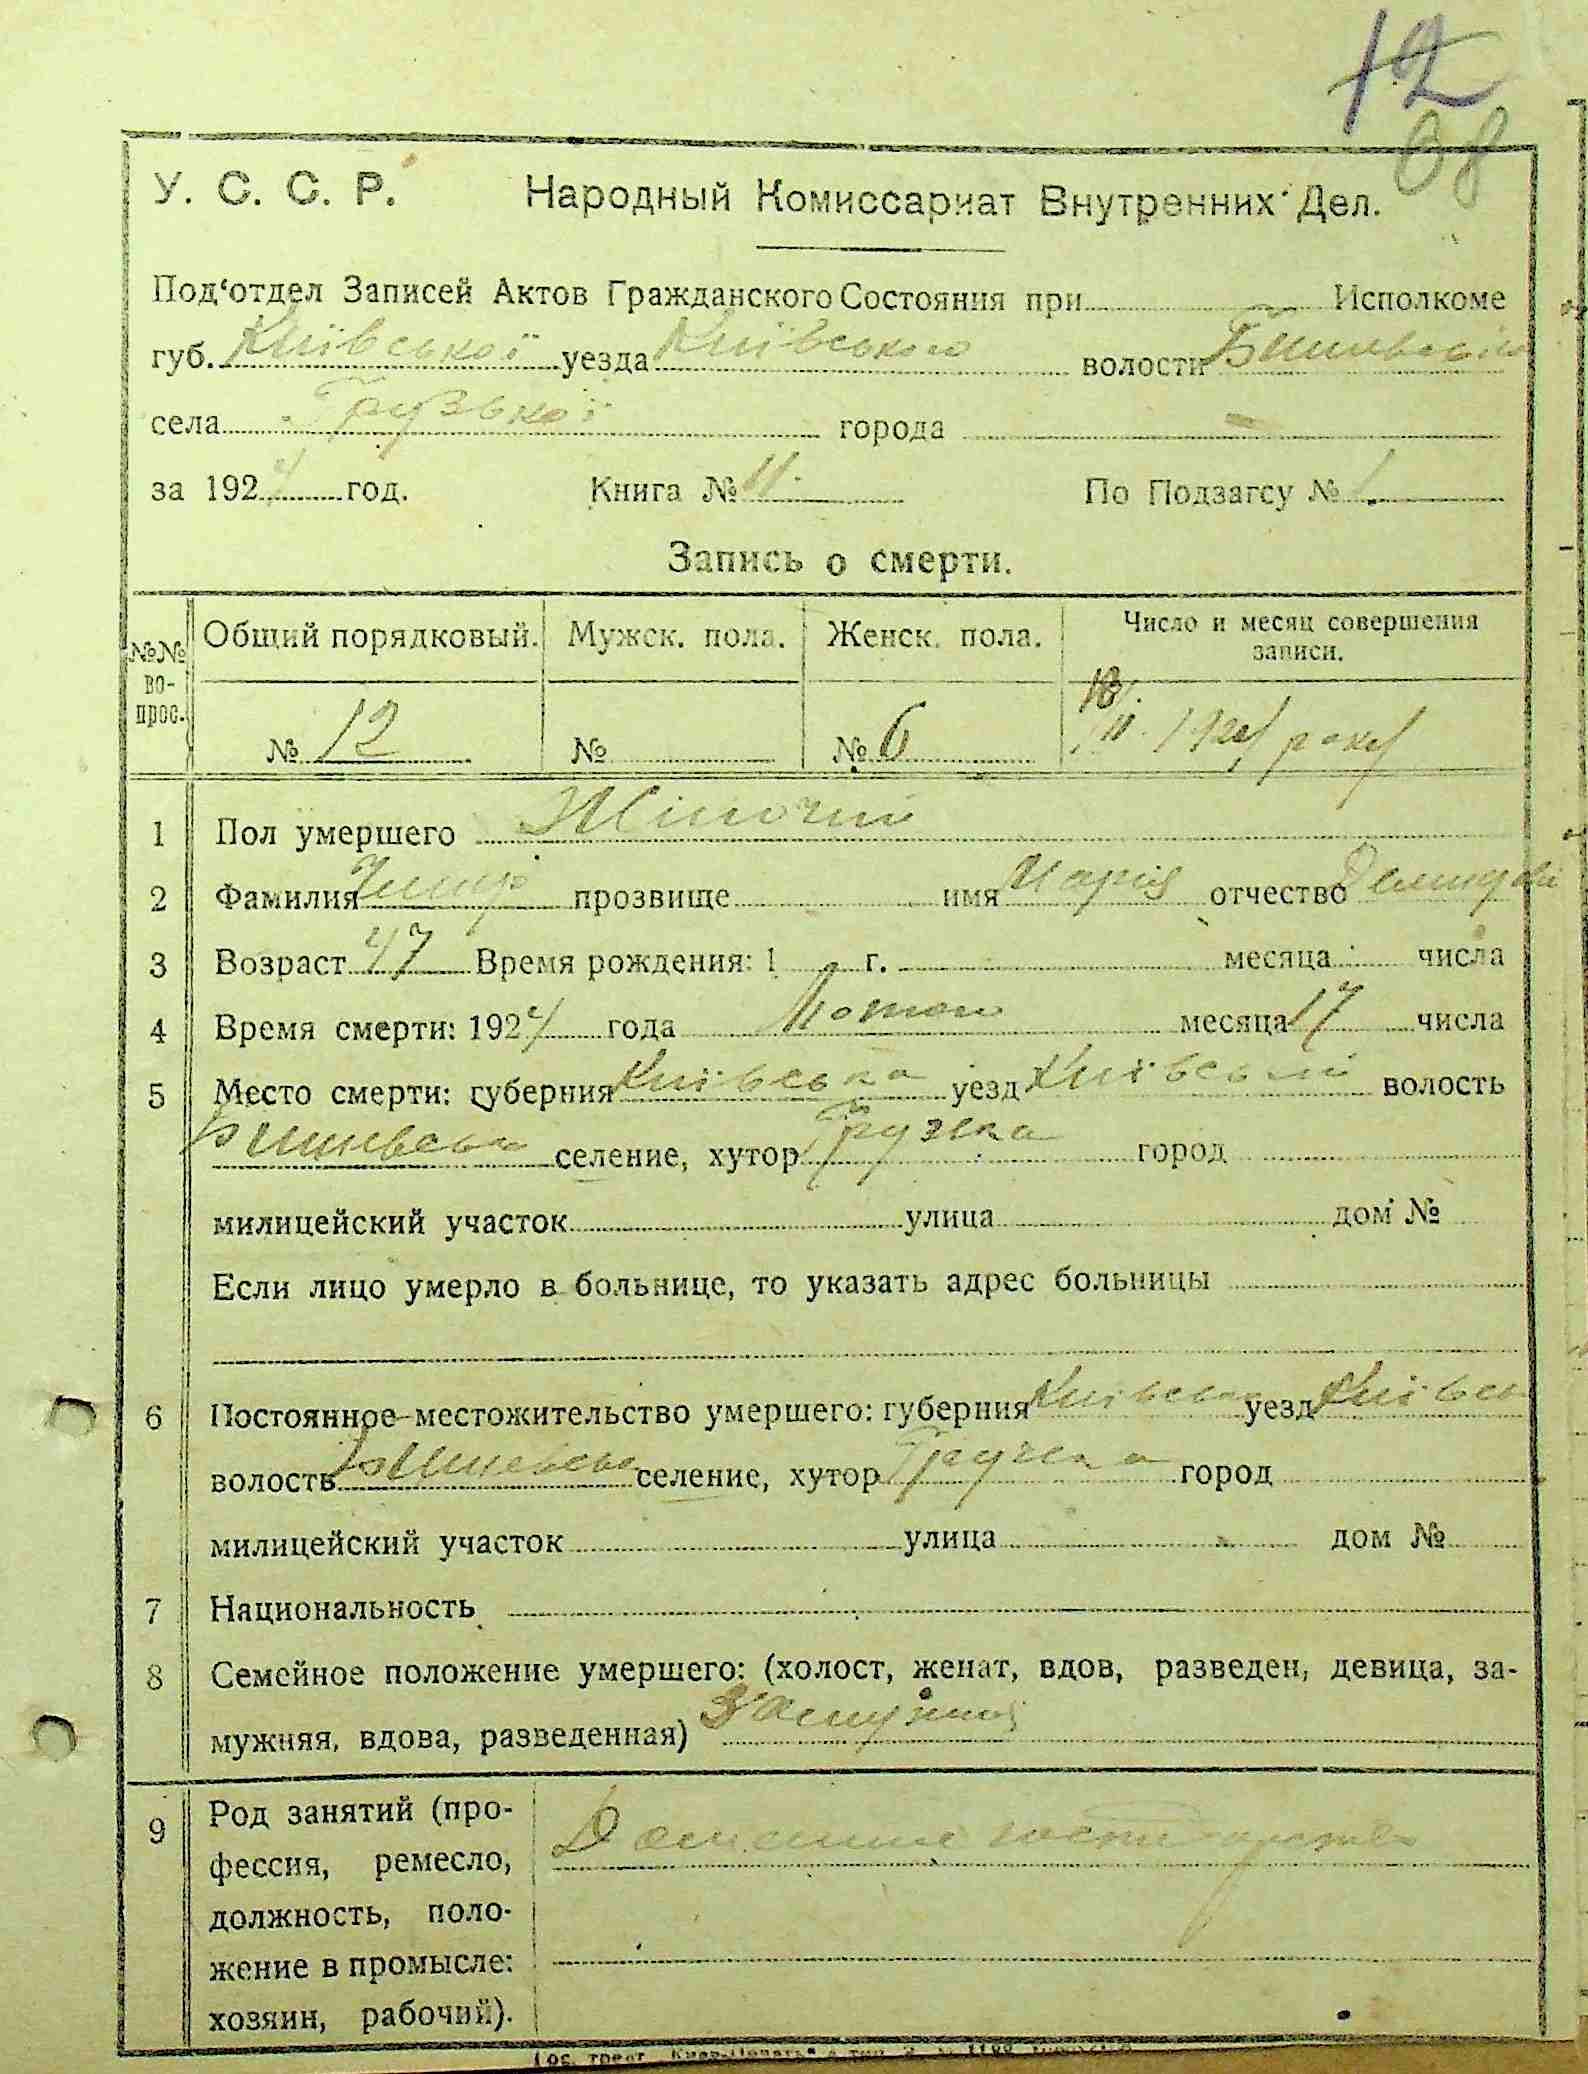 12
68
У. С. С. Р. Народный Комиссариат Внутренних Дел.
Под‘отдел Записей Актов Гражданского Состояния при Исполкоме
губ. Київської уезда Київського волости
села Грузької города -
за 1924 год. Книга № II По Подзагсу № 1
Запись о смерти.
№№ во-прос. Общий порядковый. Мужск. пола. Женск. пола. Число и месяц совершения записи.
№ 12 № № 6 18/II 1924 року
1 Пол умершего Жіночий
2 Фамилия прозвище имя Марія отчество
3 Возраст 47 Время рождения: 1 г. месяца числа
4 Время смерти: 1924 года Лютого месяца 17 числа
5 Место смерти: губерния Київська уезд Київський волость
селение, хутор Грузька город
милицейский участок улица дом №
Если лицо умерло в больнице, то указать адрес больницы
6 Постоянное местожительство умершего: губерния Київська уезд Київськ
волость селение, хутор Грузька город
милицейский участок улица дом №
7 Национальность
8 Семейное положение умершего: (холост, женат, вдов, разведен, девица, за-
мужняя, вдова, разведенная) Замужня
9 Род занятий (про-
фессия, ремесло, Домашнє господарство
должность, поло-
жение в промысле:
хозяин, рабочий).